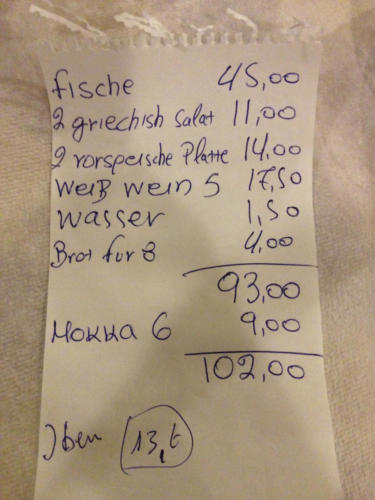 fische 45,00
2 griechish Salat 11,00
2 vorspeische Platte 14,00
weiß wein 5 17,50
wasser 1,50
Brot für 8 4,00
93,00
Mokka 6 9,00
102,00